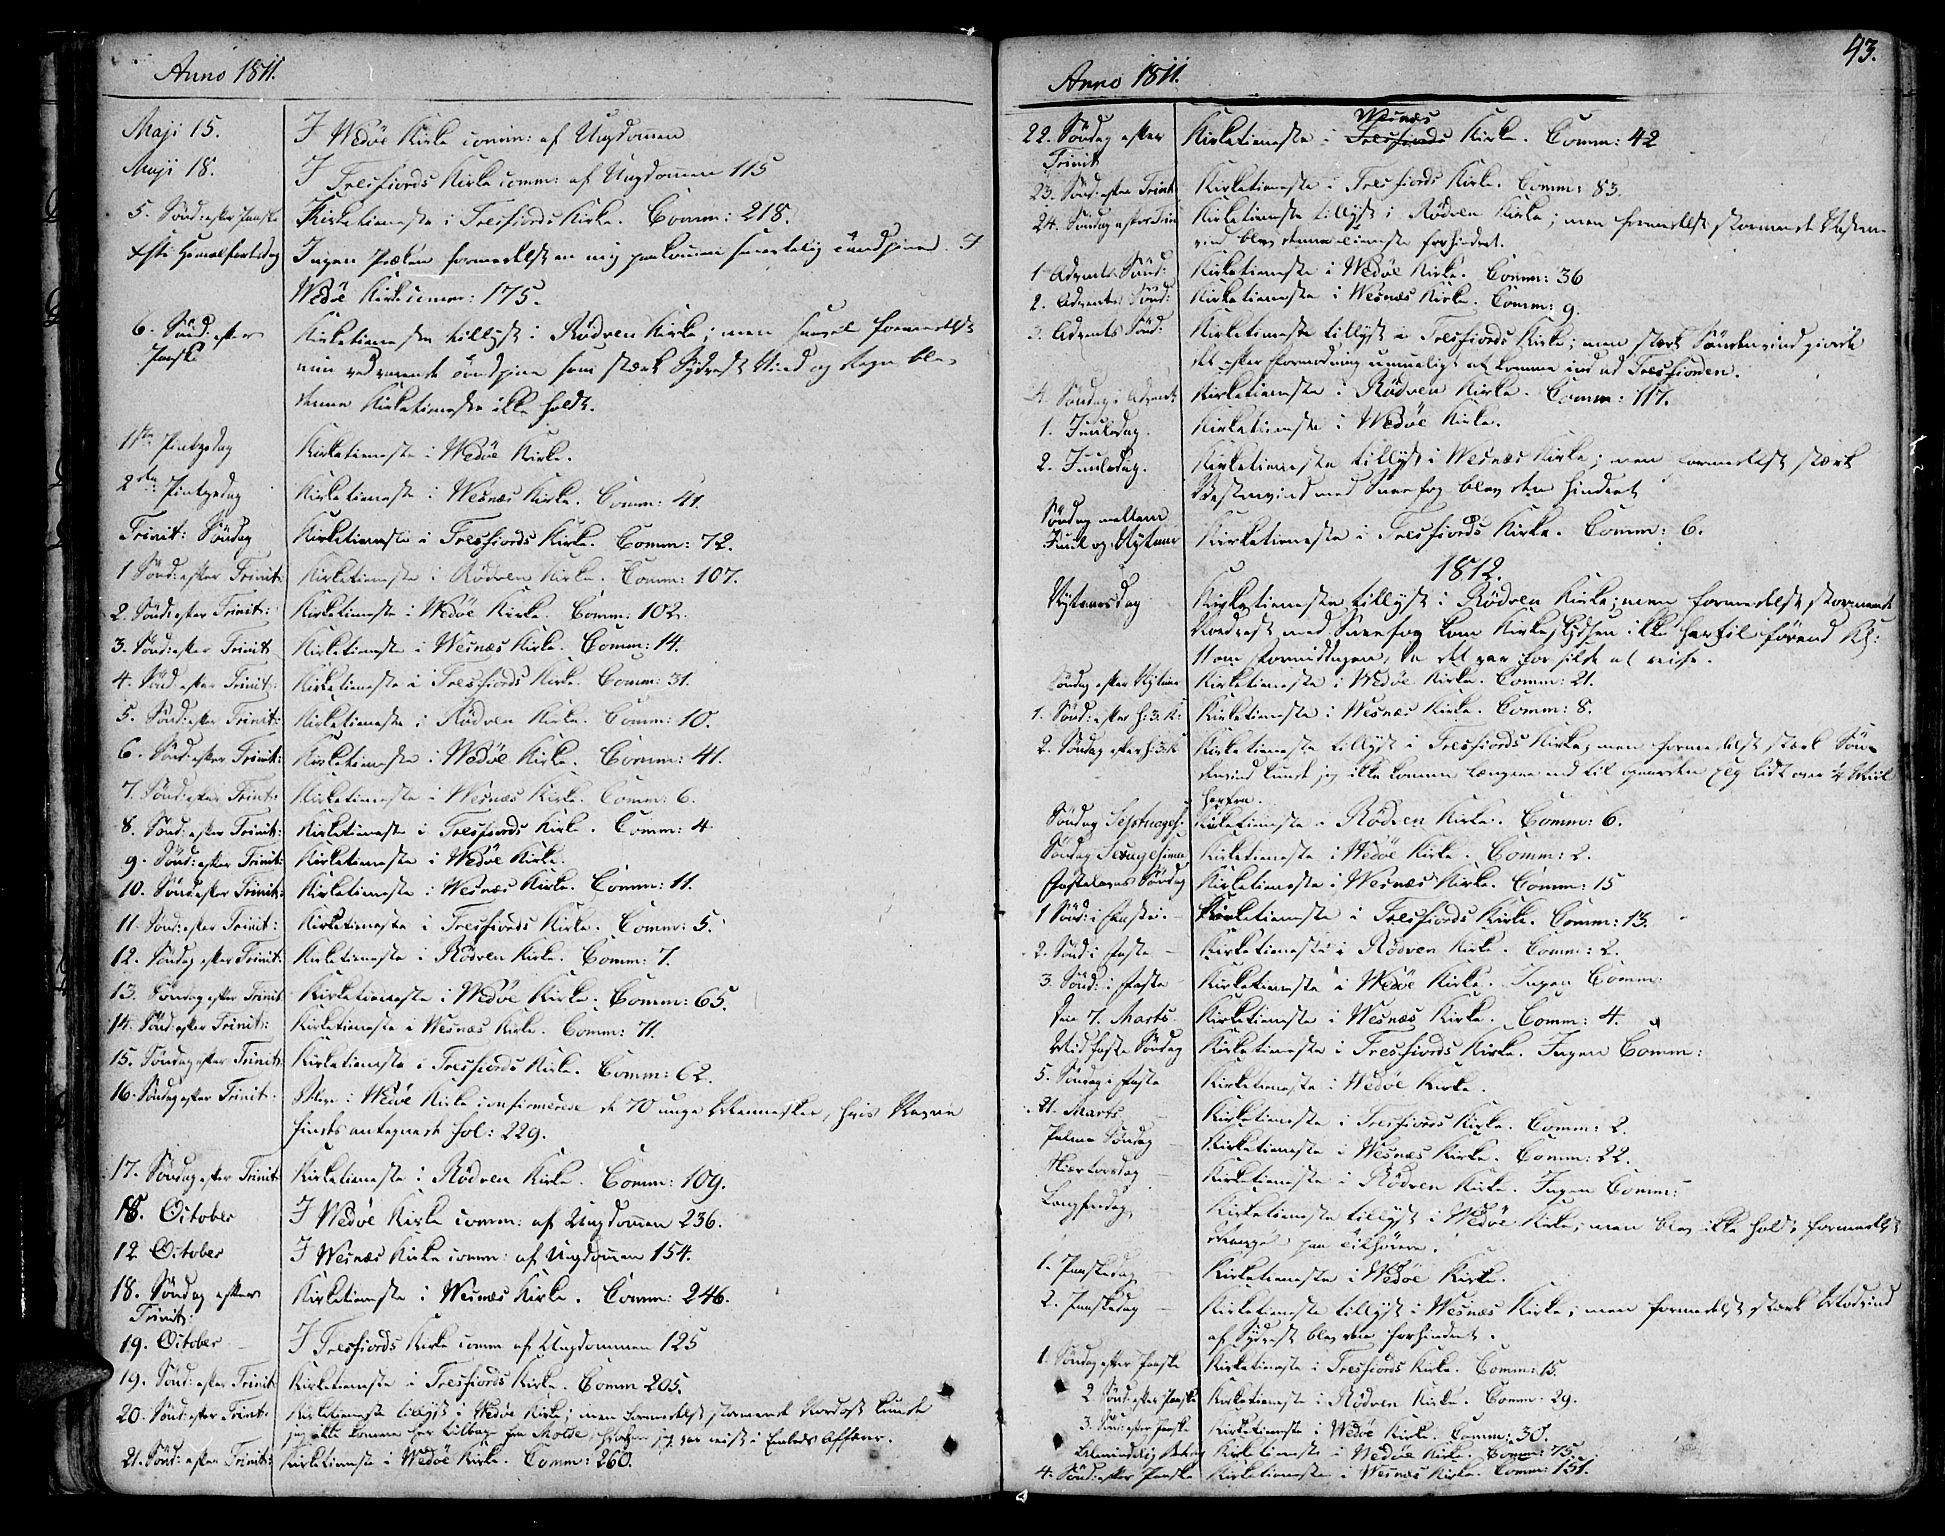 Anno 1811.
Maji 15. I Wedöe Kirke comm: af Ungdomen
Maji 18. I Tresfiords Kirke comm: af Ungdommen 115
5. Sönd: efter Paaske Kirketieneste i Tresfiords Kirke. Comm: 218.
Christi Himmelfartsdag Ingen Præken formedelst en mig paakommen smertelig I
Wedöe Kirke comm: 175.
6. Sönd: efter Kirketieneste tillyst i Rödven Kirke; men saavel formedelst
Paaske min vedvarende som stærk Sydvest Vind og Regn blev
denne Kirketieneste ikke holdt.
1ste Pintzedag Kirketieneste i Wedöe Kirke.
2den Pintzedag Kirketieneste i Wesnæs Kirke. Comm: 41.
Trinit: Söndag Kirketieneste i Tresfiords Kirke. Comm: 72.
1 Sönd: efter Trinit: Kirketieneste i Rödven Kirke. Comm: 107.
2. Sönd: efter Trinit: Kirketieneste i Wedöe Kirke. Comm: 102.
3. Sönd: efter Trinit Kirketieneste i Wesnæs Kirke. Comm: 14.
4. Sönd efter Trinit: Kirketieneste i Tresfiords Kirke. Comm: 31.
5. Sönd: efter Trinit: Kirketieneste i Rödven Kirke. Comm: 10.
6. Sönd: efter Trinit: Kirketieneste i Wedöe Kirke. Comm: 41.
7. Sönd: efter Trinit: Kirketieneste i Wesnæs Kirke. Comm: 6.
8. Sönd: efter Trinit: Kirketieneste i Tresfiords Kirke. Comm: 4
9. Sönd: efter Trinit: Kirketieneste i Wedöe Kirke.
10. Sönd efter Trinit: Kirketieneste i Wesnæs Kirke. Comm: 11.
11. Sönd: efter Trinit: Kirketieneste i Tresfiords Kirke. Comm: 5.
12. Söndag efter Trinit: Kirketieneste i Rödven Kirke. Comm: 7.
13. Söndag efter Trinit Kirketieneste i Wedöe Kirke. Comm: 65.
14. Sönd: efter Trinit: Kirketieneste i Wesnæs Kirke. Comm: 71.
15. Söndag efter Trinit: Kirketieneste i Tresfiords Kirke. Comm: 62.
16. Söndag efter Trinit: i Wedöe Kirke confirmerede de 70 unge Mennesker, hvis Navne
findes antegnede Fol: 229.
17. Söndag efter Trinit Kirketieneste i Rödven Kirke. Comm: 109.
October I Wedöe Kirke comm: af Ungdommen 236.
12 October I Wesnæs Kirke comm: af Ungdommen 154.
18. Söndag efter Kirketieneste i Wesnæs Kirke. Comm: 246.
Trinit:
19. October I Tresfiords Kirke comm af Ungdommen 125
19. Sönd: efter Trinit Kirketieneste i Tresfiords Kirke. Comm 205.
20. Sönd: efter Trinit: Kirketieneste tillyst i Wedöe Kirke; men formedelst stormende Nordost kunde
jeg ikke komme her tilbage fra Molde, jeg var reist i Embeds Affære.
21. Sönd: efter Trinit: Kirketieneste i Wedöe Kirke. Comm: 260.
43.
Anno 1811.
Wesnæs
22. Söndag efter Kirketieneste i Tresfiords Kirke. Comm: 42
Trinit
23. Sönd: efter Trinit: Kirketieneste i Tresfiords Kirke. Comm: 83.
24. Söndag efter Trin Kirketieneste tillyst i Rödven Kirke; men formedelst stormende Vesten-
vind blev denne Tieneste forhindret.
1 Advents Sönd: Kirketieneste i Wedöe Kirke. Comm: 36
2. Advents Sönd: Kirketieneste i Wesnæs Kirke. Comm: 9.
3. Advents Sönd: Kirketieneste tillyst i Tresfiords Kirke; men stærk Söndenvind giorde
det efter Formodning umueligt at komme ind ad Tresfiorden.
4. Söndag i Advent Kirketieneste i Rödven Kirke. Comm: 117.
1. Juuledag. Kirketieneste i Wedöe Kirke.
2. Juuledag. Kirketieneste tillyst i Wesnæs Kirke; men formedelst stærk
Vestenvind med Sneefog blev den hindret
Söndag mellem
Juul og Nytaar Kirketieneste i Tresfiords Kirke. Comm: 6.
1812.
Nytaarsdag Kirketieneste tillyst i Rödven Kirke; men formedelst stormende
Nordvest med Sneefog kom Kirkeskydsen ikke hertil förend Kl:
11 om Formiddagen, da det var for silde at reise.
Söndag efter Nytaar Kirketieneste i Wedöe Kirke. Comm: 21.
1. Sönd: efter H: 3. K: Kirketieneste i Wesnæs Kirke. Comm: 8.
2. Söndag efter H: 3. K Kirketieneste tillyst i Tresfiords Kirke, men formedelst stærk Sön-
denvind kunde jeg ikke komme længere end til lidt over 1/4 Miil
herfra.
Söndag Septuages: Kirketieneste i Rödven Kirke. Comm: 6.
Söndag Sexagesima Kirketieneste i Wedöe Kirke. Comm: 2.
Fastelavns Söndag Kirketieneste i Wesnæs Kirke. Comm: 15
1 Sönd: i Faste. Kirketieneste i Tresfiords Kirke. Comm: 13.
2. Sönd i Faste Kirketieneste i Rödven Kirke. Comm: 2.
3. Sönd: i Faste Kirketieneste i Wedöe Kirke. Ingen Comm:
Den 7. Marts. Kirketieneste i Wesnæs Kirke. Comm: 4.
Midfaste Söndag Kirketieneste i Tresfiords Kirke. Ingen Comm:
5. Söndag i Faste Kirketieneste i Wedöe Kirke.
21. Marts Kirketieneste i Tresfiords Kirke. Comm: 2.
Palme Söndag Kirketieneste i Wesnæs Kirke. Comm: 22.
Skiertorsdag Kirketieneste i Rödven Kirke. Ingen Comm:
Langfredag. Kirketieneste tillyst i Wedöe Kirke, men blev ikke holdt formedelst
Mangel paa Tilhörere.
1. Paaskedag Kirketieneste i Wedöe Kirke.
2. Paaskedag Kirketieneste tillyst i Wesnæs Kirke; men formedelst stærk Modvind
af Sydvest blev den forhindret.
1. Söndag efter Paaske Kirketieneste i Tresfiords Kirke. Comm: 15.
2. Sönd: efter Paaske Kirketieneste i Rödven Kirke. Comm: 29.
3. Sönd: efter Paaske Kirketieneste i Wedöe Kirke. Comm: 30.
Almindelig Bededag Kirketieneste i Wedöe Kirke. Comm: 75.
4. Sönd: efter Paaske Kirketieneste i Wesnæs Kirke. Comm: 151.